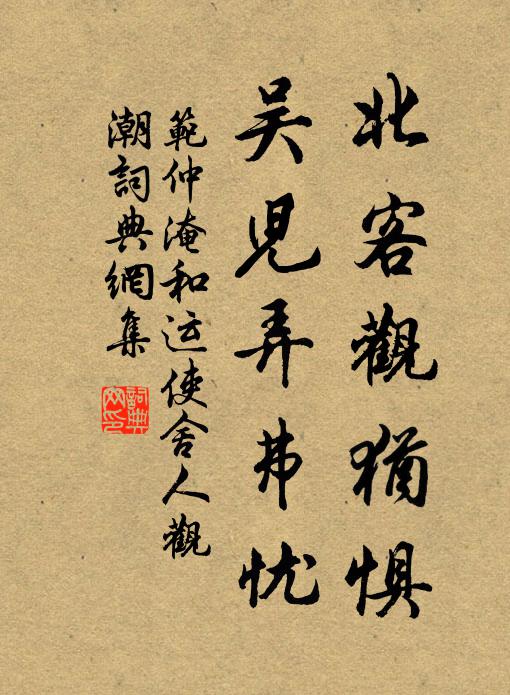 北客觀猶惧
吴児弄弗忧
範仲淹和运使舍人觀
潮詞典網集
詞典网印